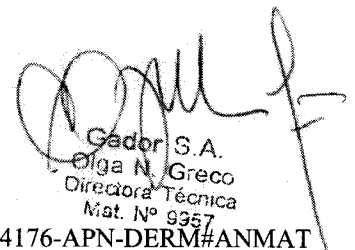 Gador S.A.
Olga N. Greco
Directora Técnica
Mat. Nº 9957
4176-APN-DERM#ANMAT